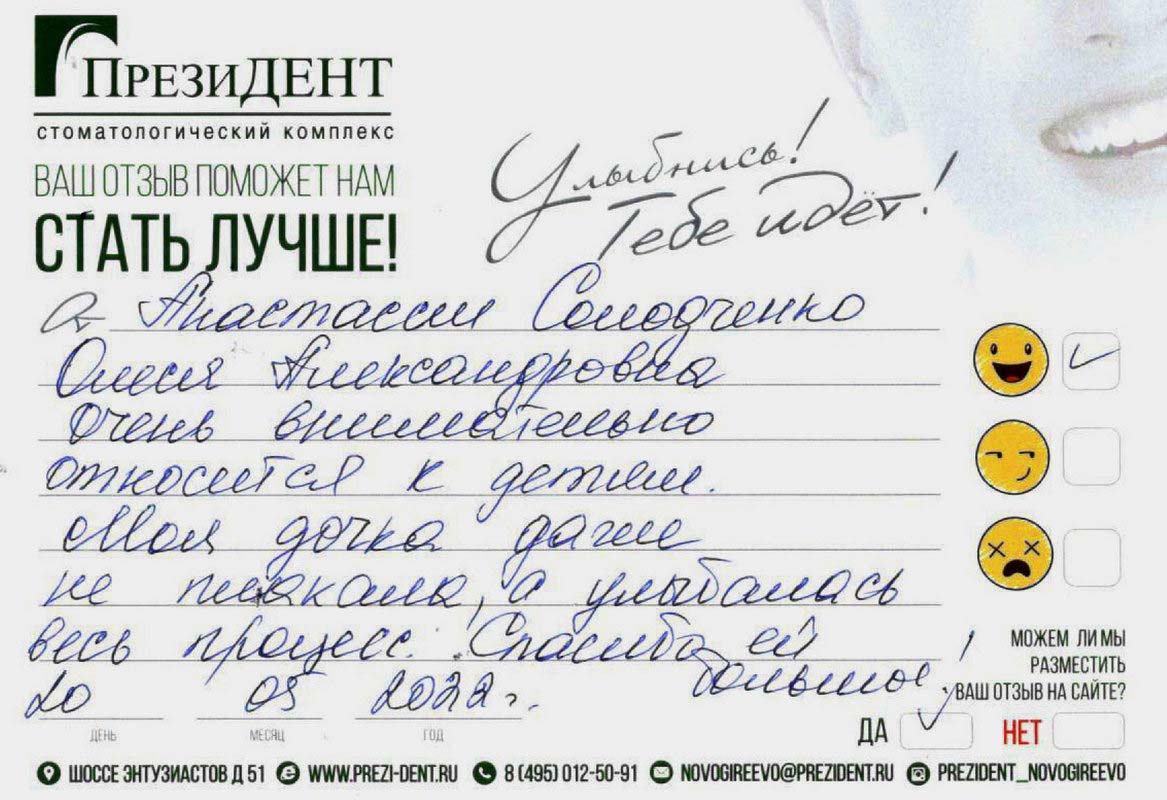 ПрезиДЕНТ
стоматологический комплекс
ВАШ ОТЗЫВ ПОМОЖЕТ НАМ
СТАТЬ ЛУЧШЕ!
Улыбнись!
Тебе идёт!
от Анастасии Солодченко
Олеся Александровна
очень внимательно
относится к детям.
Моя дочка даже
не плакала, а улыбалась
весь процесс. Спасибо ей
большое!
20 05 2022 г.
ДЕНЬ МЕСЯЦ ГОД
МОЖЕМ ЛИ МЫ
РАЗМЕСТИТЬ
ВАШ ОТЗЫВ НА САЙТЕ?
ДА НЕТ
ШОССЕ ЭНТУЗИАСТОВ Д 51 WWW.PREZI-DENT.RU 8 (495) 012-50-91 NOVOGIREEVO@PREZIDENT.RU PREZIDENT_NOVOGIREEVO